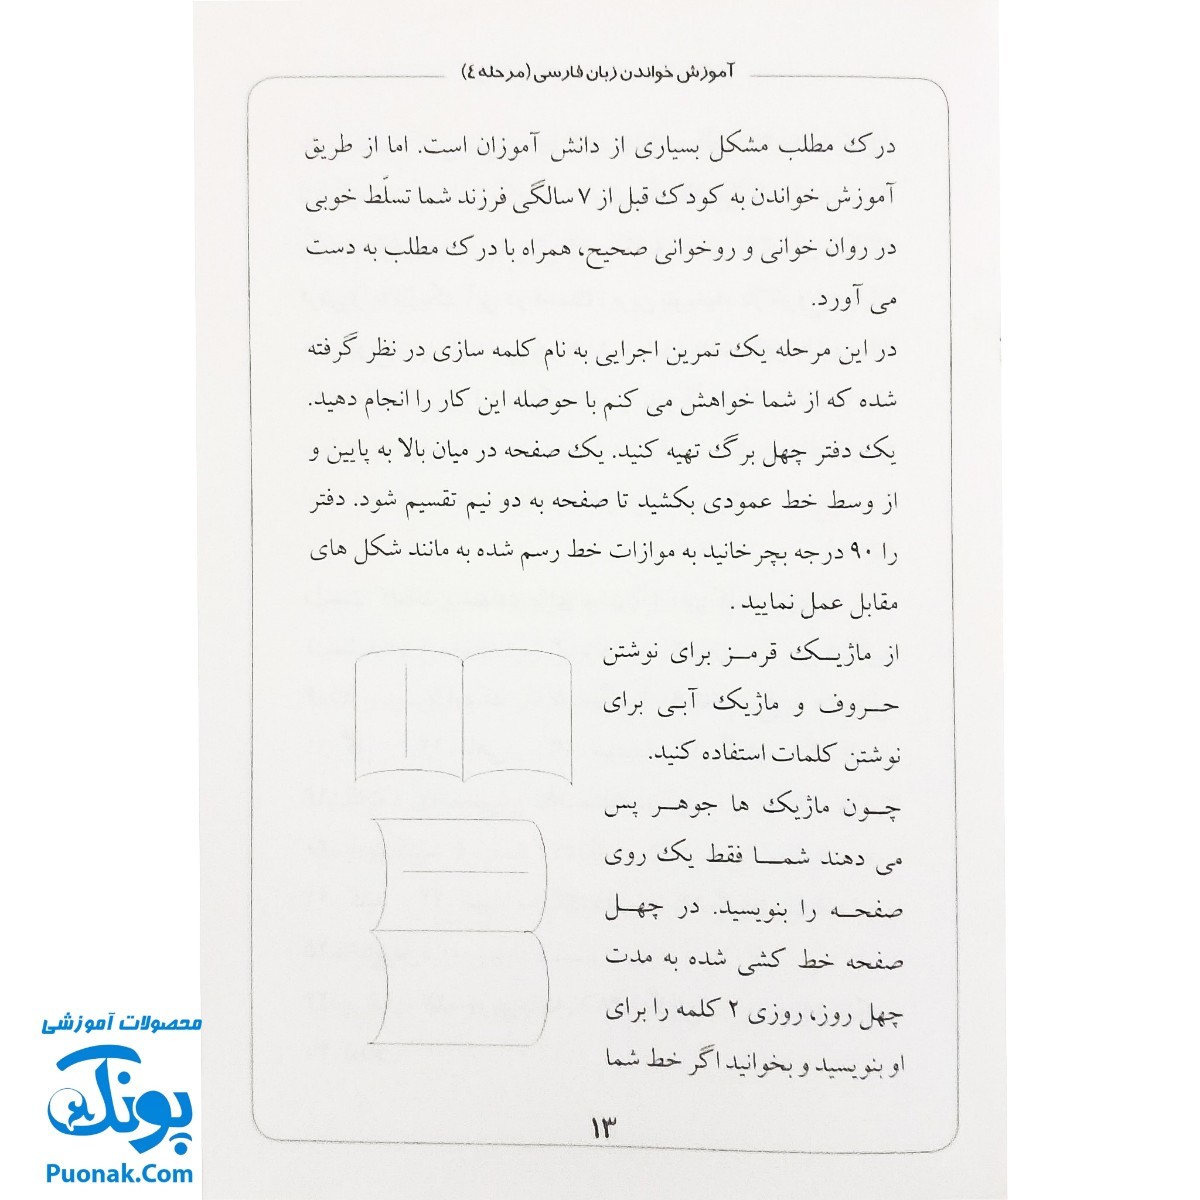 آموزش خواندن زبان فارسی (مرحله ٤)
درک مطلب مشکل بسیاری از دانش آموزان است. اما از طریق
آموزش خواندن به کودک قبل از ۷ سالگی فرزند شما تسلّط خوبی
در روان خوانی و روخوانی صحیح، همراه با درک مطلب به دست
می آورد.
در این مرحله یک تمرین اجرایی به نام کلمه سازی در نظر گرفته
شده که از شما خواهش می کنم با حوصله این کار را انجام دهید.
یک دفتر چهل برگ تهیه کنید. یک صفحه در میان بالا به پایین و
از وسط خط عمودی بکشید تا صفحه به دو نیم تقسیم شود. دفتر
را ۹۰ درجه بچرخانید به موازات خط رسم شده به مانند شکل های
مقابل عمل نمایید .
از ماژیک قرمز برای نوشتن
حروف و ماژیک آبی برای
نوشتن کلمات استفاده کنید.
چون ماژیک ها جوهر پس
می دهند شما فقط یک روی
صفحه را بنویسید. در چهل
صفحه خط کشی شده به مدت
چهل روز، روزی ۲ کلمه را برای
او بنویسید و بخوانید اگر خط شما
۱۳
محصولات آموزشی
پونک
Puonak.Com